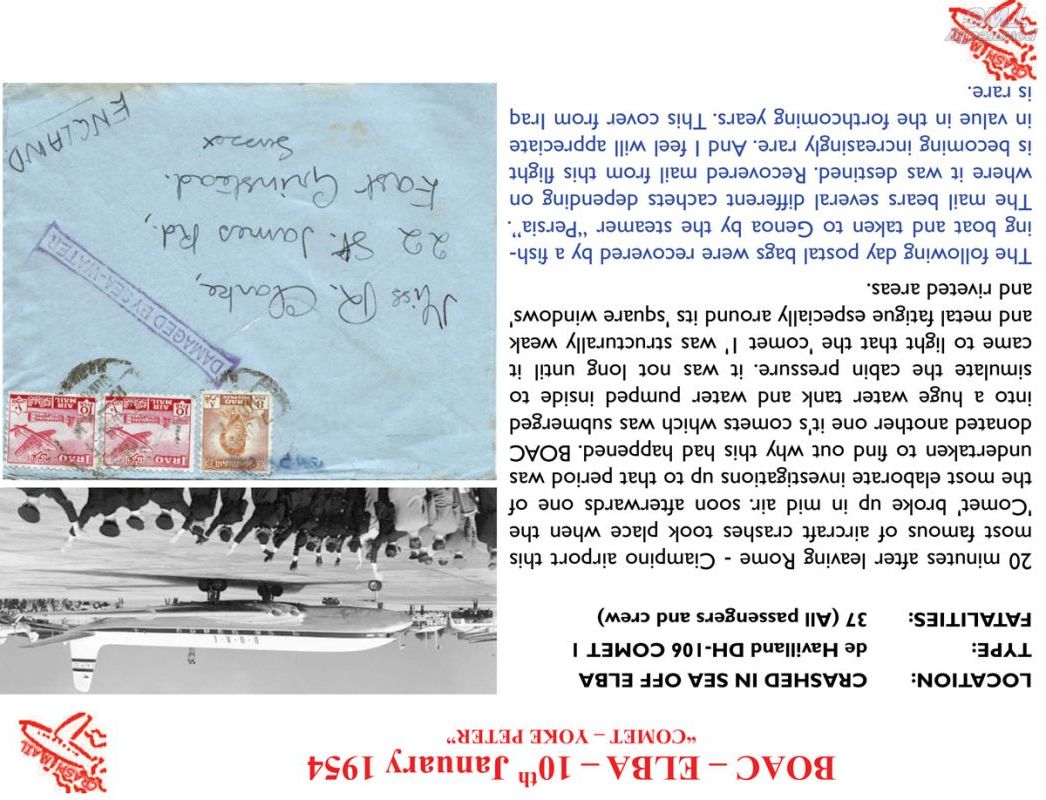 BOAC – ELBA – 10th January 1954
“COMET – YOKE PETER”
LOCATION: CRASHED IN SEA OFF ELBA
TYPE: de Havilland DH-106 COMET 1
FATALITIES: 37 (All passengers and crew)
20 minutes after leaving Rome - Ciampino airport this
most famous of aircraft crashes took place when the
'Comet' broke up in mid air. soon afterwards one of
the most elaborate investigations up to that period was
undertaken to find out why this had happened. BOAC
donated another one it's comets which was submerged
into a huge water tank and water pumped inside to
simulate the cabin pressure. it was not long until it
came to light that the 'comet 1' was structurally weak
and metal fatigue especially around its 'square windows'
and riveted areas.
The following day postal bags were recovered by a fish-
ing boat and taken to Genoa by the steamer “Persia”.
The mail bears several different cachets depending on
where it was destined. Recovered mail from this flight
is becoming increasingly rare. And I feel will appreciate
in value in the forthcoming years. This cover from Iraq
is rare.
B·O·A·C
IRAQ
AIR MAIL
10
IRAQ
AIR MAIL
10
IRAQ
POSTAGE
DAMAGED BY SEA-WATER
Miss R. Clarke,
22 St. James Rd.,
East Grinstead.
Sussex
ENGLAND
CRASH MAIL
CRASH MAIL